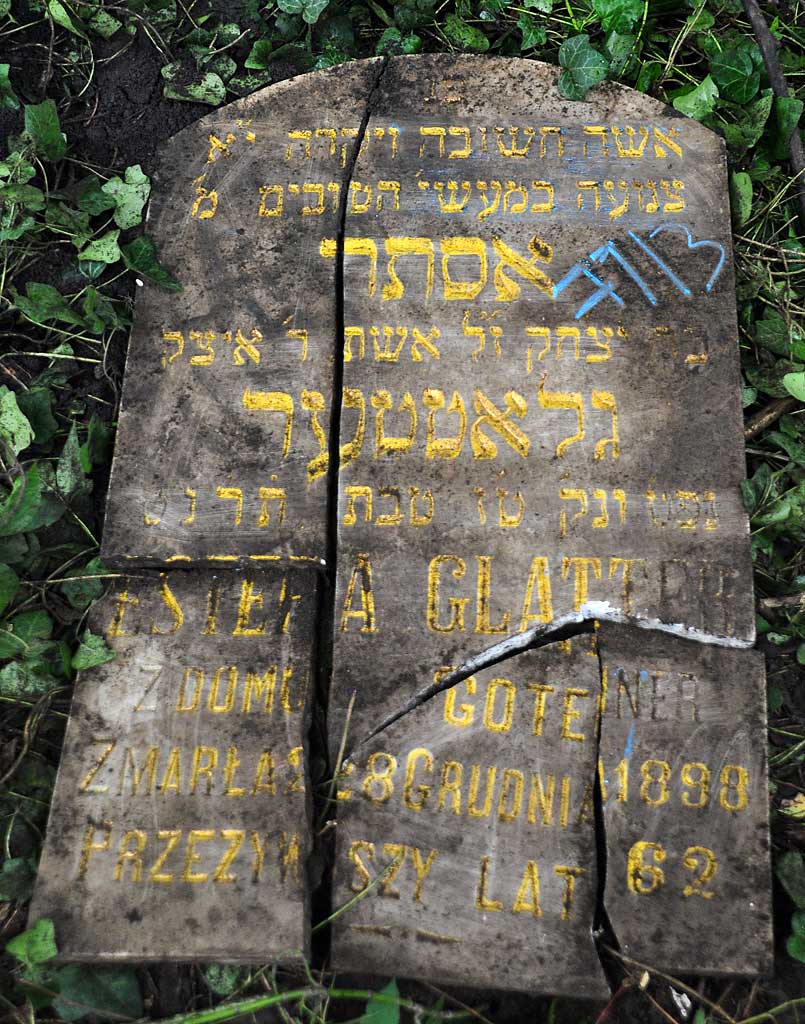 אשה חשובה ויקרה יא
צנועה במעשי׳ הטובים מ׳
אסתר
יצחק ז״ל אשת ר׳ איצק
גלאטטער
נפט׳ ונק׳ טז טבת תרנט
ESTERA GLATTER
Z DOMU GOTEINER
ZMARŁA 28 GRUDNIA 1898
PRZEZYWSZY LAT 62